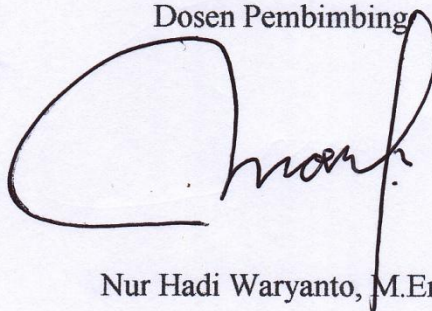 Dosen Pembimbing
Nur Hadi Waryanto, M.En